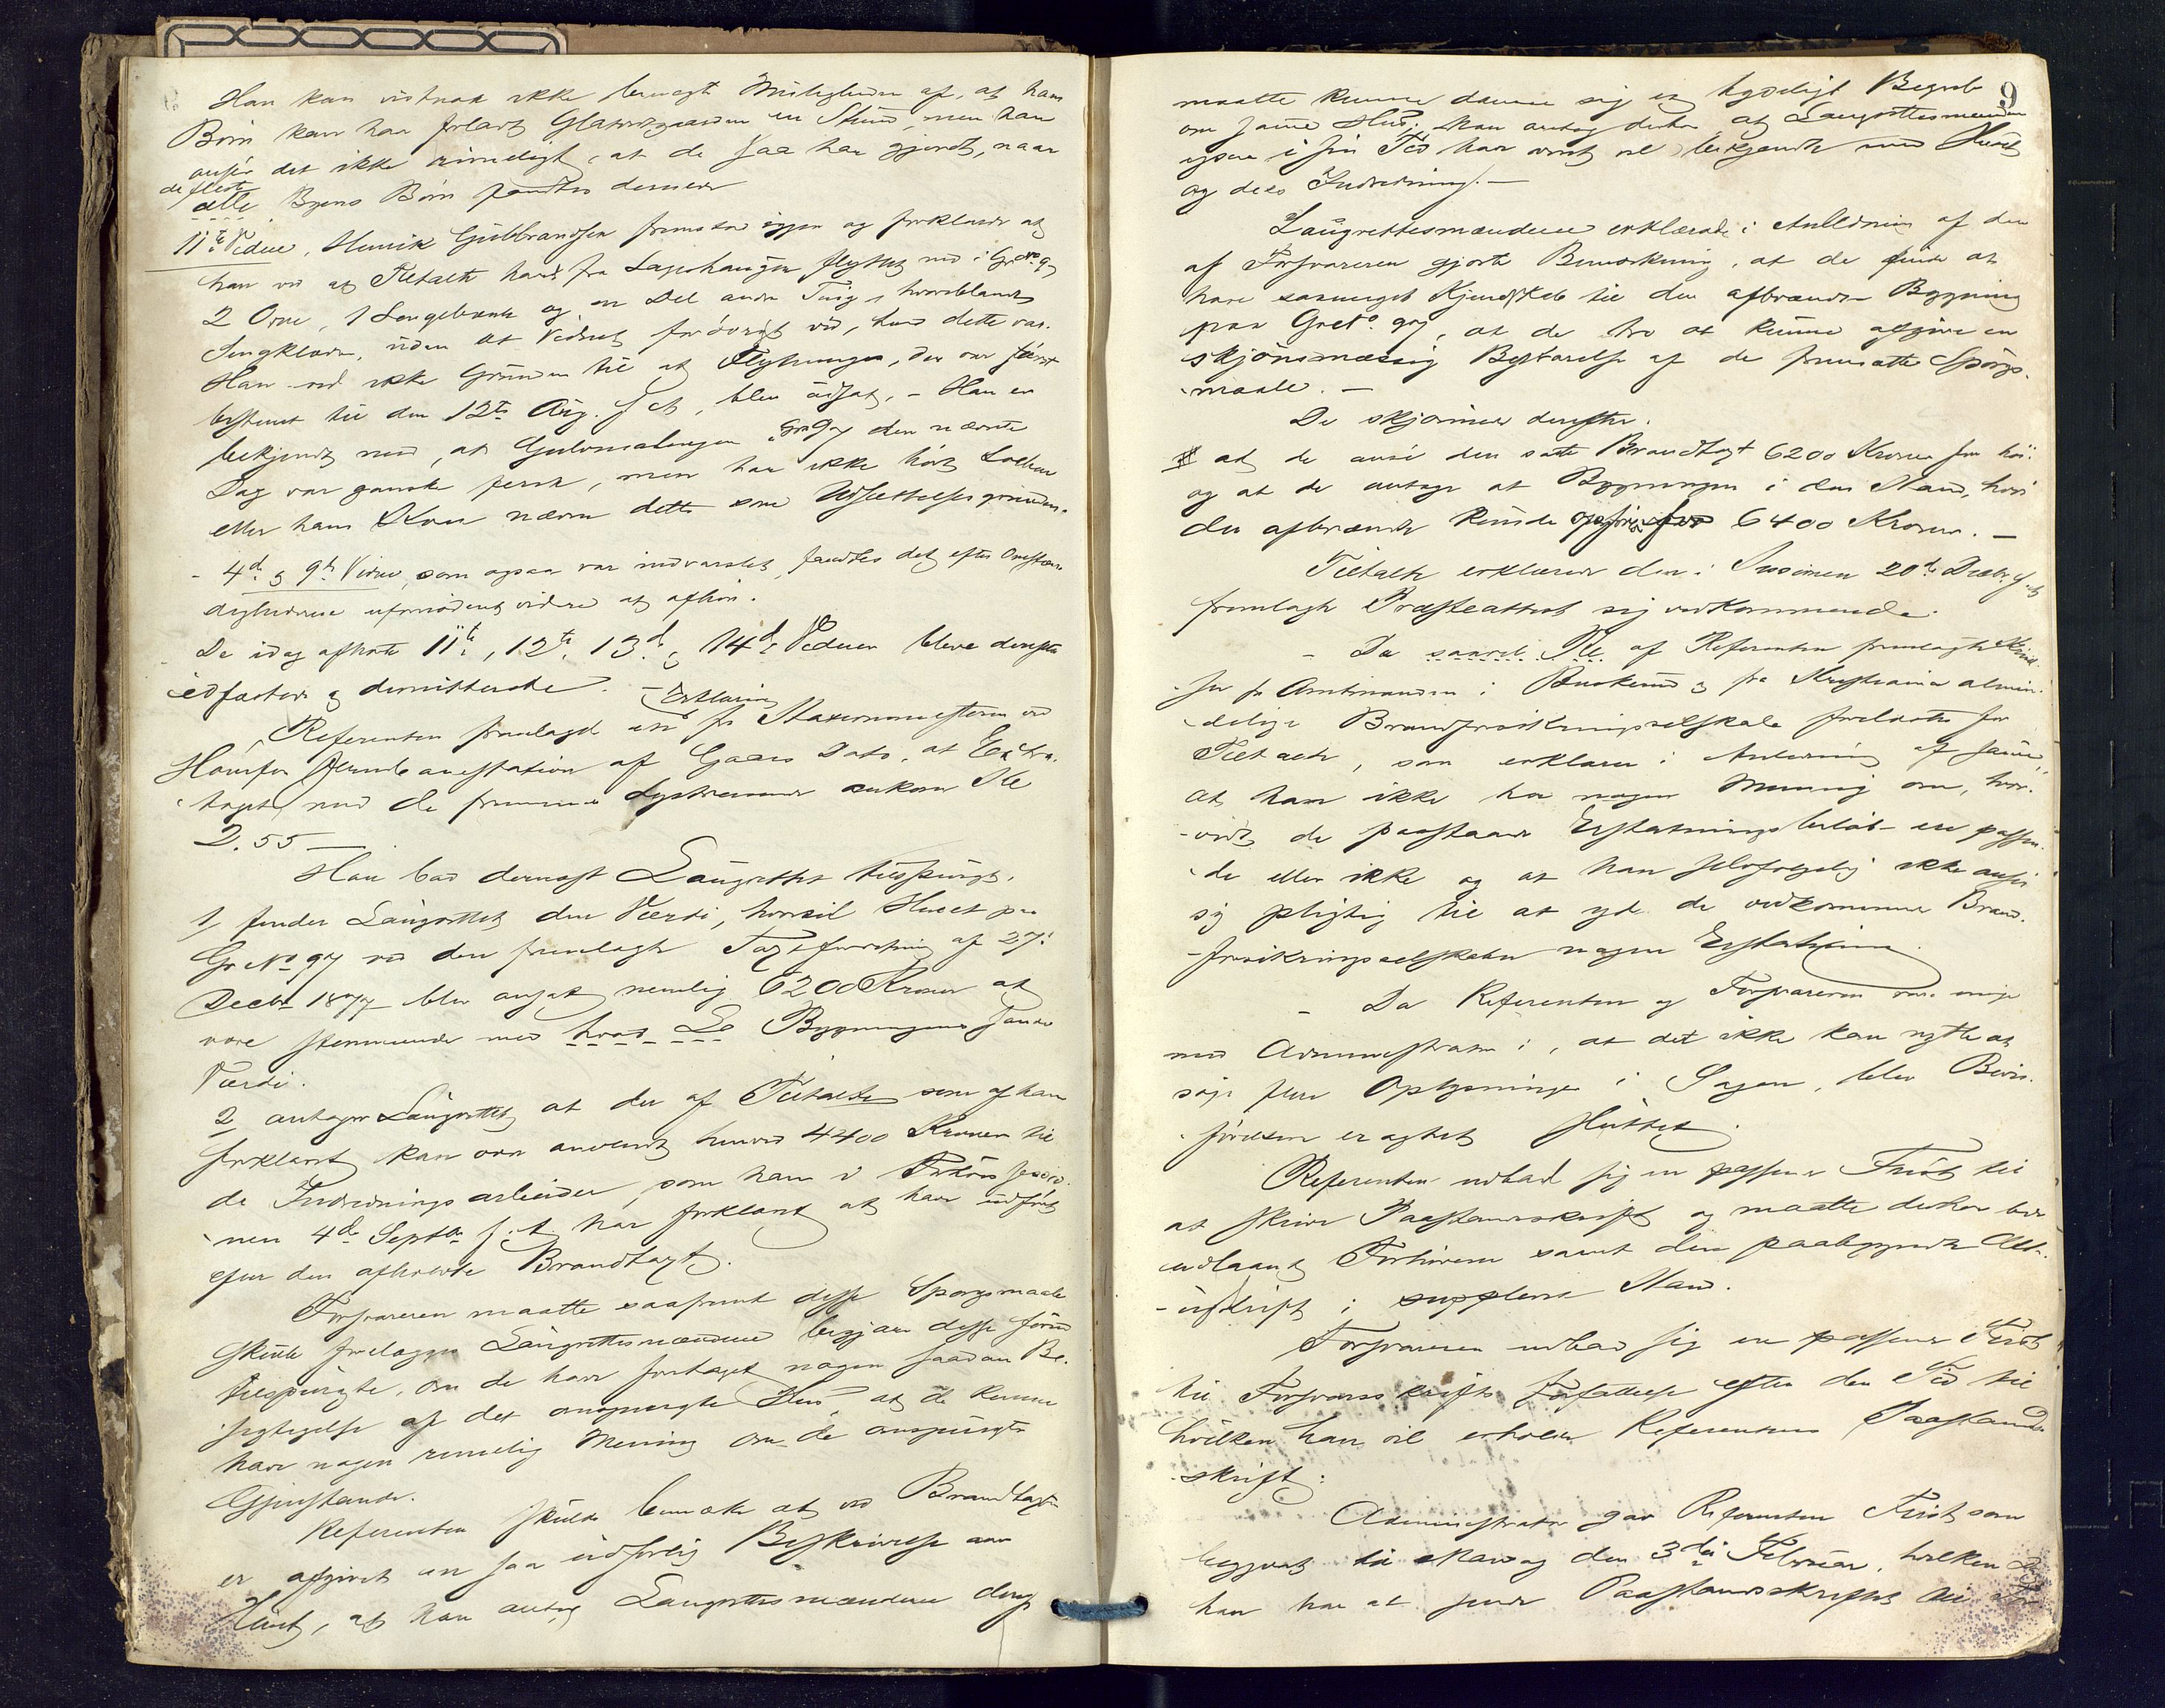 Han kan vistnok ikke benægte Muligheden af, at hans
Børn kan have forladt Gaarden en Stund, men han
anser det ikke rimeligt, at de saa har gjort, naar
de fleste
alle Byens Børn fandtes dernede
11te Vidne, Henrik Gulbrandsen fremstod igjen og forklarede at
han ved at Tiltalte havde fra Lagerhaugen flyttet ned i Gr No 97
2 Ovne, 1 Sengebænk og en Del andre Ting, hvoriblandt
Sengklæder, uden at Vidnet forøvrigt ved, hvad dette var.
Han ved ikke Grunden til at Flytningen, der var først
bestemt til den 12te Aug. f. A., blev udsat. – Han er
bekjendt med, at Gulvmalingen i Gr 97 den nævnte
Dag var ganske fersk, men har ikke hørt
eller hans Kone nævne dette som Udsættelsesgrunden.
– 4de og 9de Vidne, som ogsaa var indvarslet, fandtes det efter Omstæn-
dighederne ufornødent videre at afhøre.
De idag afhørte 11te, 12te, 13de og 14de Vidner bleve derefter
edfæstede og demitterede. –
Erklæring
Referenten fremlagde en fra Stationsmesteren ved
Hønefos Jernbanestation af Gaars Dato, at Extra-
toget med de fremmede Lystreisende ankom Kl
2.55 –
Han bad dernæst Laugrettet tilspurgt.
1, finder Laugrettet den Værdi, hvortil Huset paa
Gr No 97 ved den fremlagte Taxtforretning af 27de
Decbr 1877 blev ansat, nemlig 6200 Kroner at
være stemmende med hvad Bygningens sande
Værdi.
2 antager Laugrettet, at der af Tiltalte som af ham
forklaret kan være anvendt henved 4400 Kroner til
de Indredningsarbeider, som han i Forhørssessio-
nen 4de Septbr f. A. har forklaret at have udført
efter den afholdte Brandtaxt.
Forsvareren maatte saafremt disse Spørgsmaale
skulle forelægges Laugrettesmændene begjære disse først
tilspurgte, om de have foretaget nogen saadan Be-
sigtigelse af det omspurgte Hus, at de kunne
have nogen rimelig Mening om de omspurgte
Gjenstande.
Referenten skulde bemærke at ved Brandtaxten
er afgivet en saa udførlig Beskrivelse over
Huset, at han antog Laugrettesmændene derefter
9
maatte kunne danne sig et tydeligt Begreb
om samme Hus; han antog derhos, at Laugrettesmændene
ogsaa i sin Tid har været vel bekjendt med Huset
og dets Indredning. –
Laugrettesmændene erklærede i Anledning af den
af Forsvareren gjorte Bemærkning, at de finde at
have saameget Kjendskab til den afbrændte Bygning
paa Gr No 97, at de tro at kunne afgive en
skjønsmæssig Besvarelse af de fremsatte Spørgs-
maale. –
De skjønnede derefter.
at de anse den satte Brandtaxt 6200 Kroner for høi
og at de antage at Bygningen i den Stand, hvori
den afbrændte kunde opføres for 6400 Kroner. –
Tiltalte erklærede den i Sessionen 20de Decbr f. A.
fremlagte Præsteattest sig vedkommende.
– Da saavel af Referenten fremlagte Skrivel-
ser fra Amtmanden i Buskerud og fra Kristiania almin-
delige Brandforsikringsselskab foreholdtes for
Tiltalte, som erklærer i Anledning af samme,
at han ikke har nogen Mening om, hvor-
vidt de paastaaede Erstatningsbeløb ere passen-
de eller ikke og at han selvfølgelig ikke anser
sig pligtig til at yde de vedkommende Brand-
forsikringsselskaber nogen Erstatning.
– Da Referenten og Forsvareren vare enige
med Administrator i, at det ikke kan nytte at
søge flere Oplysninger i Sagen, blev Bevis-
førelsen eragtet sluttet.
Referenten udbad sig en passende Frist til
at skrive Paastandsskrift og maatte derhos bede
udlaant Forhørene samt den paabegyndte Akt-
udskrift i suppleret Stand.
Forsvareren udbad sig en passende Frist
til Forsvarsskrifts Forfattelse efter den Tid til
hvilken han vil erholde Referentens Paastands-
skrift.
Administrator gav Referenten Frist som
begjæret til Mandag den 3die Februar, hvilken Dag
han har at sende Paastandsskriftet til